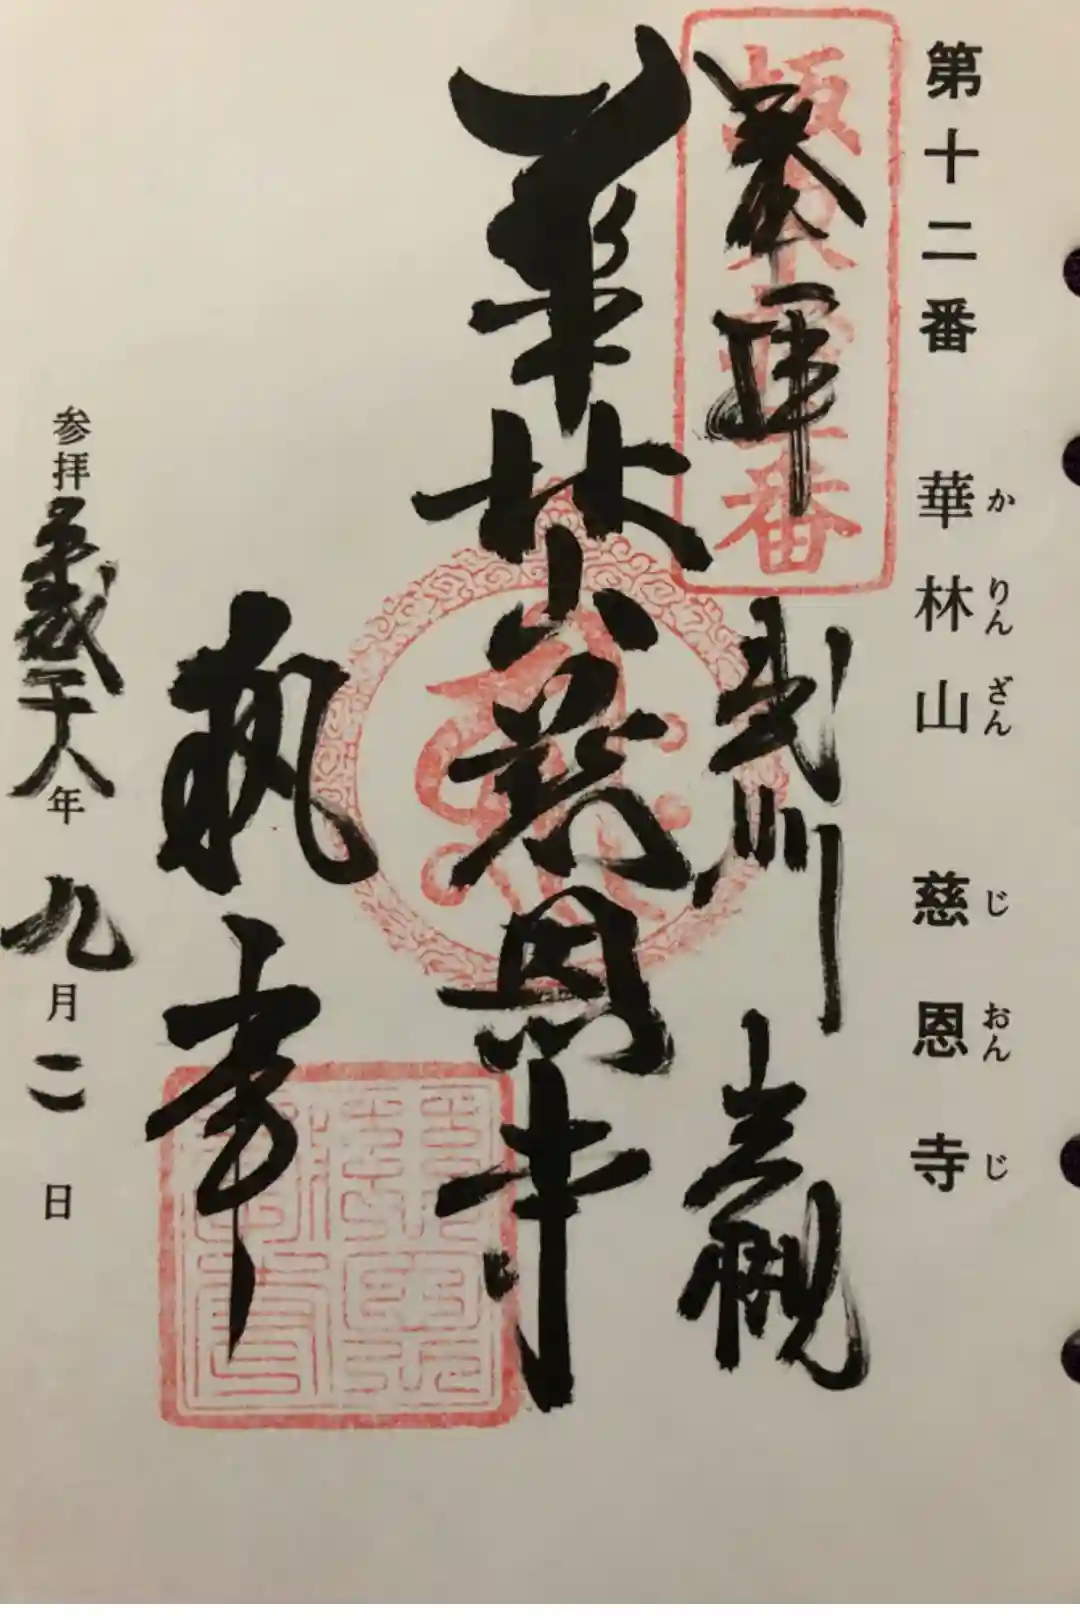 第十二番 華林山 慈恩寺
かりんざん じおんじ
坂東十二番
奉拝 武州 岩槻
華林山慈恩寺
執事
参拝平成二十八年九月二日